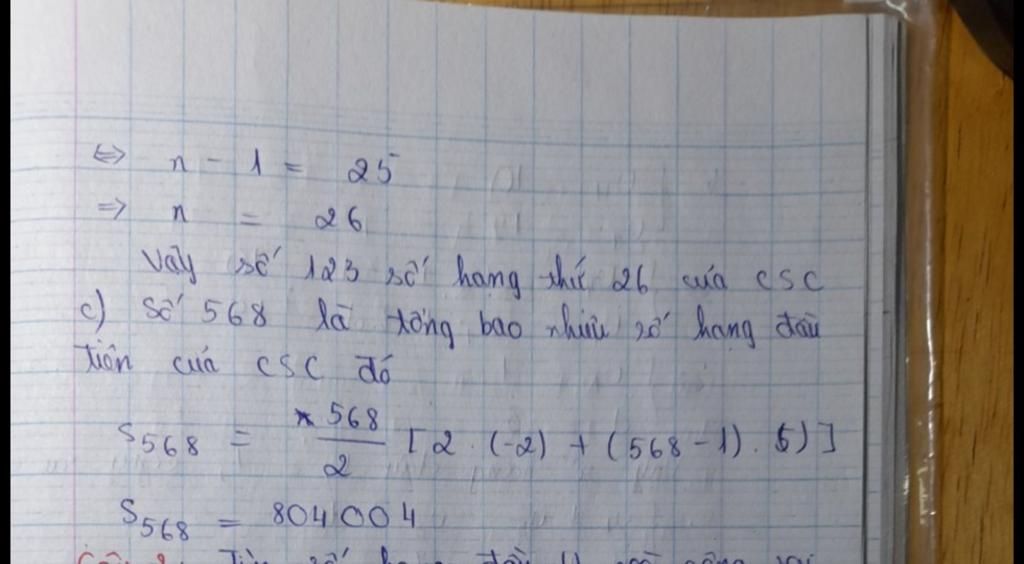 ⇔ n - 1 = 25
⇒ n = 26
Vậy số 123 số hạng thứ 26 của CSC
c) Số 568 là tổng bao nhiêu số hạng đầu
tiên của CSC đó
S₅₆₈ = 568/2 [2 . (-2) + (568 - 1) . 5)]
S₅₆₈ = 804 004